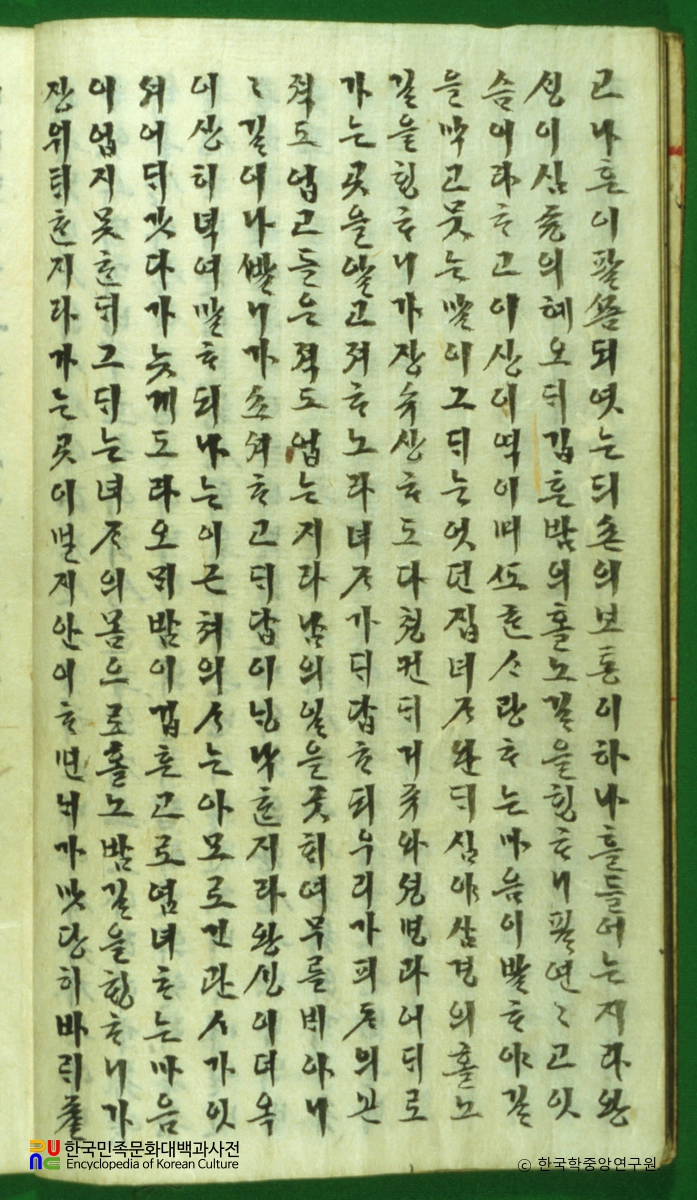 고나흔이팔쯤되엿는ᄃᆡ손의보통이하나흘들어는지라왕
ᄉᆡᆼ이심즁의혜오ᄃᆡ깁흔밤의홀노길을ᄒᆡᆼᄒᆞ니필연〻고잇
슴이라ᄒᆞ고이상이역이ᄆᆡᄯᅩᄒᆞᆫᄉᆞ랑ᄒᆞ는마음이발ᄒᆞ야길
을막고뭇는말이그ᄃᆡ는엇던집녀ᄌᆞ완ᄃᆡ심야삼경의홀노
길을ᄒᆡᆼᄒᆞ니가장슈상ᄒᆞ도다쳥컨ᄃᆡ거쥬와셩명과어ᄃᆡ로
가는곳을알고져ᄒᆞ노라녀ᄌᆞ가ᄃᆡ답ᄒᆞ되우리가피ᄎᆞ의본
젹도업고들은젹도업는지라남의일을굿히여무를ᄇᆡ아니
〻길이나ᄲᅡᆯ니가쇼셔ᄒᆞ고ᄃᆡ답이닝낙ᄒᆞᆫ지라왕ᄉᆡᆼ이더옥
이상히녁여말ᄒᆞ되나는이근쳐의ᄉᆞ는아모로건관ᄉᆞ가잇
셔어ᄃᆡ갓다가늣게도라오ᄆᆡ밤이깁흔고로염녀ᄒᆞ는마음
이업지못ᄒᆞᆫᄃᆡ그ᄃᆡ는녀ᄌᆞ의몸으로홀노밤길을ᄒᆡᆼᄒᆞ니가
장위ᄐᆡᄒᆞᆫ지라가는곳이멀지안이ᄒᆞ면ᄂᆡ가맛당히바ᄅᆡ줄
한국민족문화대백과사전
Encyclopedia of Korean Culture
© 한국학중앙연구원